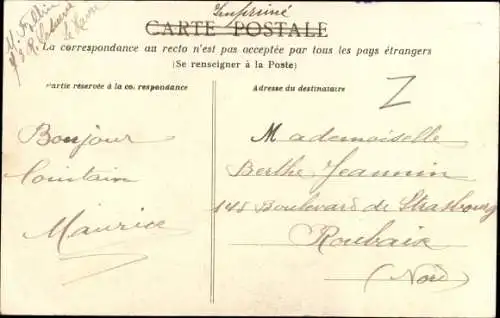 Imprimé
CARTE POSTALE
La correspondance au recto n'est pas acceptée par tous les pays étrangers
(Se renseigner à la Poste)
Partie réservée à la correspondance
Adresse du destinataire
Bonjour
Lointain
Maurice
Mademoiselle
Berthe Jeannin
148 Boulevard de Strasbourg
Roubaix
(Nord)